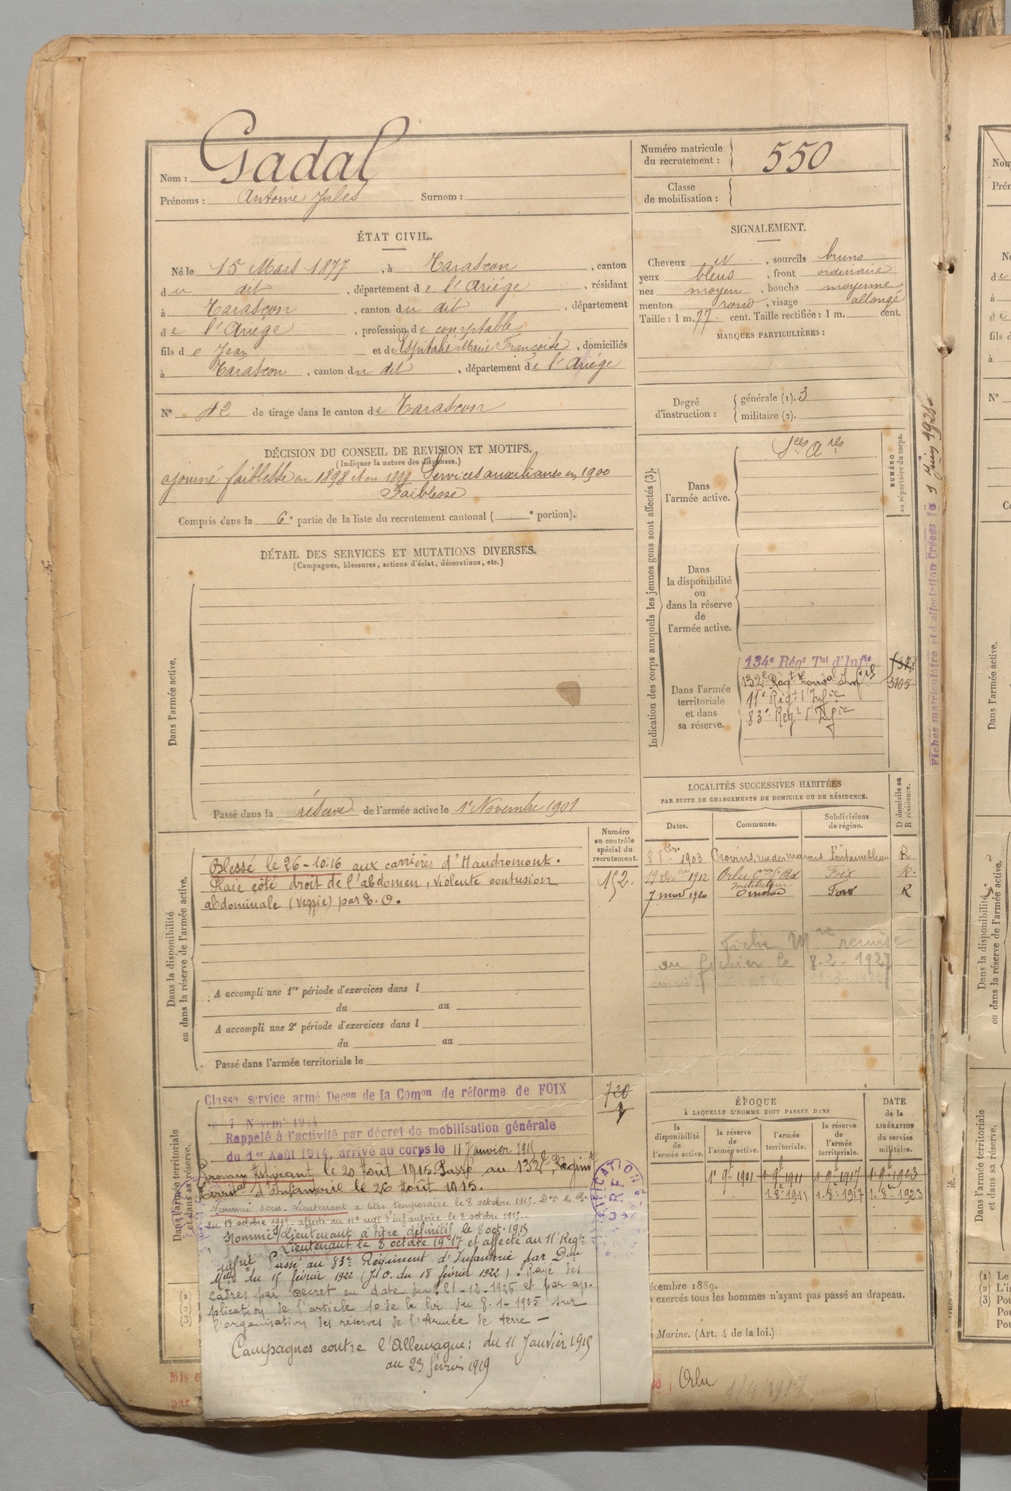 Nom : Gadal
Prénoms : Antoine Jules Surnom :
Numéro matricule du recrutement : 550
Classe de mobilisation :
ÉTAT CIVIL.
Né le 15 Mars 1877, à Tarascon, canton
du dit, département de l'Ariége, résidant
à Tarascon, canton du dit, département
de l'Ariège, profession de comptable
fils de Jean et de Marie Françoise, domiciliés
à Tarascon, canton du dit, département de l'Ariége
N° 42 de tirage dans le canton de Tarascon
SIGNALEMENT.
Cheveux et, sourcils bruns
yeux bleus, front ordinaire
nez moyen, bouche moyenne
menton rond, visage allongé
Taille : 1 m. 77 cent. Taille rectifiée : 1 m. cent.
MARQUES PARTICULIÈRES :
Degré d'instruction : générale (1). 3
militaire (2).
DÉCISION DU CONSEIL DE REVISION ET MOTIFS.
(Indiquer la nature des dispenses.)
ajourné faiblesse en 1898 et en 1899 Services auxiliaires en 1900
Faiblesse
Compris dans la 6e partie de la liste du recrutement cantonal ( e portion).
DÉTAIL DES SERVICES ET MUTATIONS DIVERSES.
(Campagnes, blessures, actions d'éclat, décorations, etc.)
Dans l'armée active.
Passé dans la réserve de l'armée active le 1er Novembre 1901
Indication des corps auxquels les jeunes gens sont affectés (3).
NUMÉRO au répertoire du corps.
Dans l'armée active.
Sces Ares
Dans la disponibilité ou dans la réserve de l'armée active.
Dans l'armée territoriale et dans sa réserve.
134e Régt Tal d'Infie
132e Régt Territal Infie
11e Régt d'Infie
83e Régt d'Infie
3105
Fiches matriculaire et d'affectation Créées le
LOCALITÉS SUCCESSIVES HABITÉES
PAR SUITE DE CHANGEMENTS DE DOMICILE OU DE RÉSIDENCE.
Dates. Communes. Subdivisions de région. D domicile ou R résidence.
1903 Provins Fontainebleau R
1912 Orlu Foix R.
7 mars 1920 Foix R
instituteur
Fiche Mre remise
au fichier le 8-2-1927
Dans la disponibilité ou dans la réserve de l'armée active.
Numéro au contrôle spécial du recrutement.
152.
Blessé le 26-10-16 aux carrières d'Haudromont.
Plaie côté droit de l'abdomen, violente contusion
abdominale (vessie) par E. O.
A accompli une 1re période d'exercices dans l
du au
A accompli une 2e période d'exercices dans l
du au
Passé dans l'armée territoriale le
Dans l'armée territoriale et dans sa réserve.
720
Classé service armé Decon de la Comon de réforme de FOIX
7 Novemb 1914
Rappelé à l'activité par décret de mobilisation générale
du 1er Août 1914, arrivé au corps le 11 Janvier 1915
Promu Aspirant le 20 Août 1915. Passé au 132e Régimt
Territal d'Infanterie le 26 Août 1915.
Nommé Sous-Lieutenant à titre temporaire le 8 octobre 1915.
du 13 octobre 1915, affecté au 11e régt d'infanterie le 8 octobre 1915
Nommé S/Lieutenant à titre définitif le 8 oct. 1915
Lieutenant le 8 octobre 1917 et affecté au 11e Régt
Passé au 83e Régiment d'Infanterie par Don
Melle du 15 février 1922 (J.O. du 18 février 1922). Rayé des
cadres par décret en date du 21-12-1926 et par ap-
plication de l'article de la loi du 8-1-1925 sur
l'organisation des réserves de l'Armée de terre —
Campagnes contre l'Allemagne : du 11 Janvier 1915
au 23 février 1919
ÉPOQUE
À LAQUELLE L'HOMME DOIT PASSER DANS
la disponibilité de l'armée active. la réserve de l'armée active. l'armée territoriale. la réserve de l'armée territoriale.
DATE de la LIBÉRATION du service militaire.
1er 9bre 1901 1-9bre 1911 1-9bre 1917 1-9bre 1923
1-8-1911 1-8-1917 1-8-1923
décembre 1889.
exercés tous les hommes n'ayant pas passé au drapeau.
Marine. (Art. 4 de la loi.)
Orlu